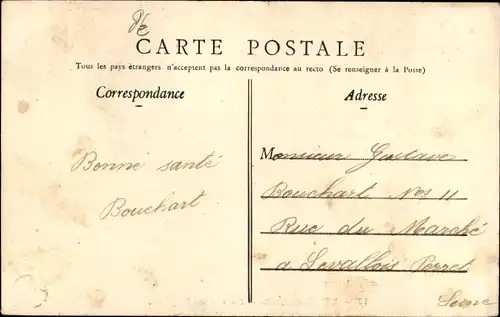 CARTE POSTALE
Tous les pays étrangers n'acceptent pas la correspondance au recto (Se renseigner à la Poste)
Correspondance
Adresse
Bonne santé
Bouchart
Monsieur Gustave
Bouchart Nos 11
Rue du Marché
a Levallois Perret
Seine